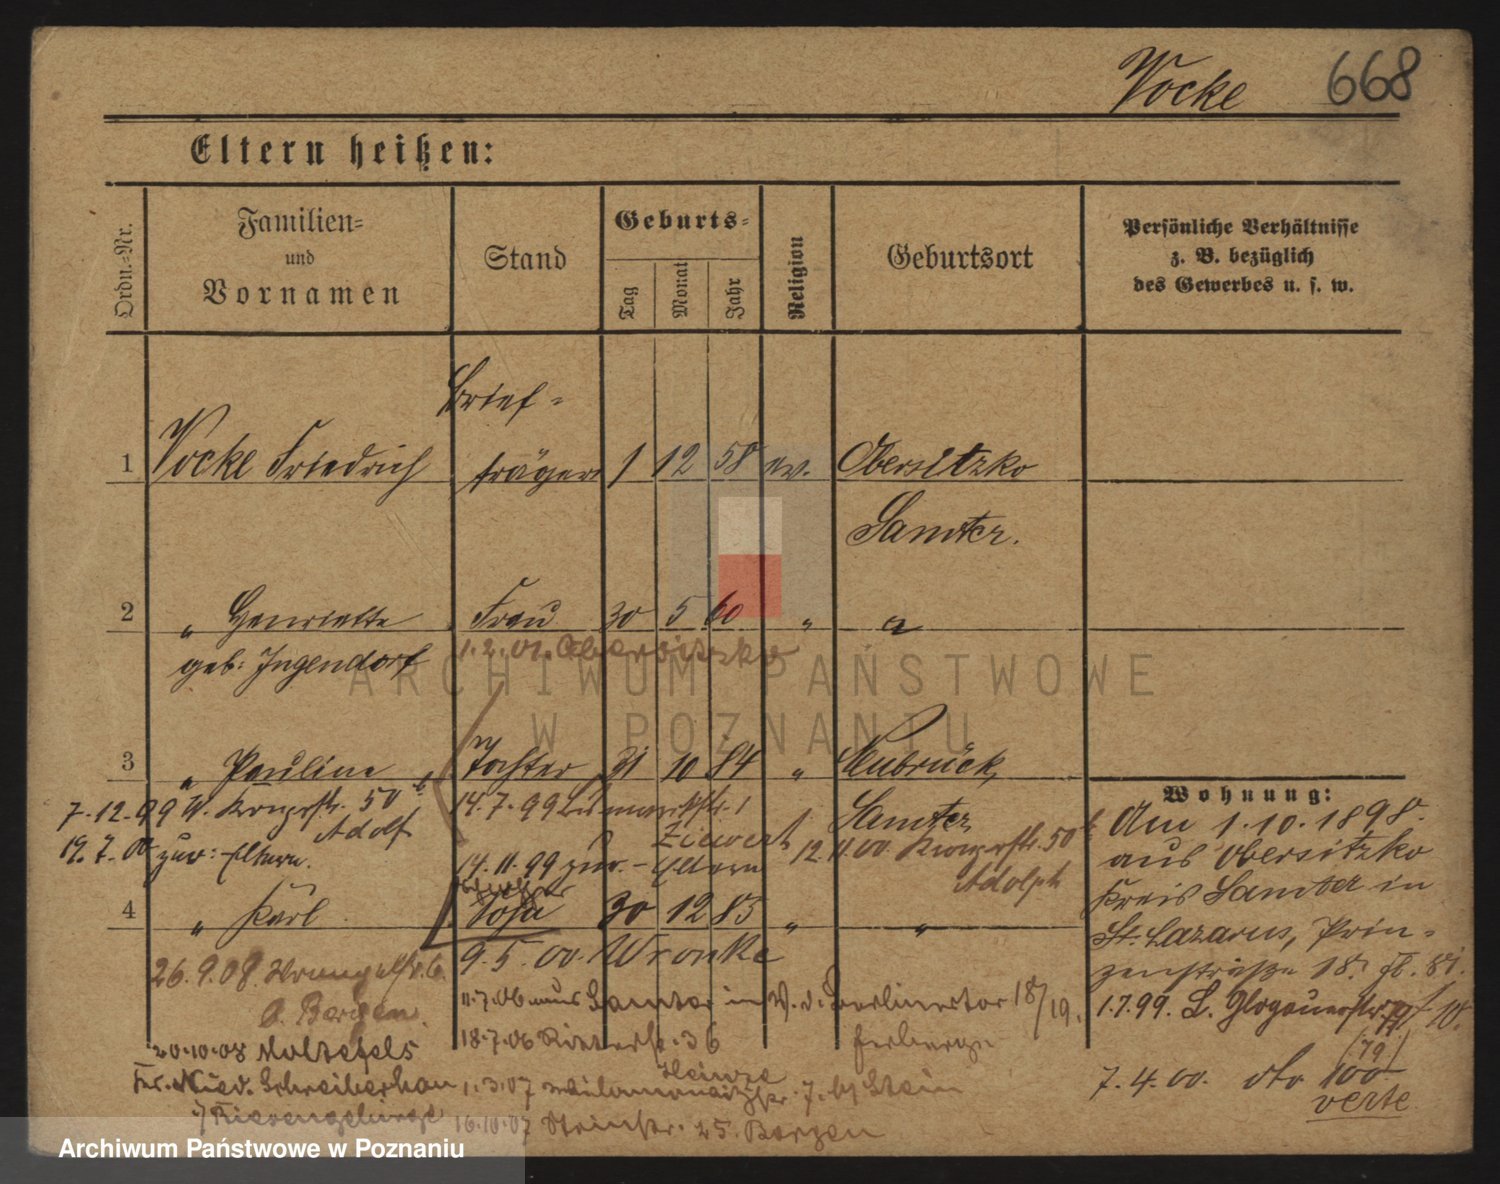 Vocke 668
Eltern heißen:
Ordn.-Nr.
Familien-
und
Vornamen
Stand
Geburts-
Tag
Monat
Jahr
Religion
Geburtsort
Persönliche Verhältnisse
z. B. bezüglich
des Gewerbes u. s. w.
Brief-
1 Vocke Friedrich träger 1 12 58 ev. Obersitzko
Samter.
2 " Henriette Frau 30 5 60 " "
geb: Jugendorf 1.2.01. Obersitzko
3 " Pauline Tochter 31 10 84 " Neubrück,
7.12.99 50 14.7.99 Samter
Adolf
19.7.00 zur: Eltern. 14.11.99 zur.- Eltern 12.11.00. 50
Adolph
4 " Karl Sohn 30 12 83 " "
9.5.00. Wronke
26.9.08. 6.
b. Bergen.
11.7.06 aus Samter in Berlinertor 18/19.
20.10.08 18.7.06 Ritterstr. 36 Herberge
Heinze
Schreiberhau 1.3.07 7. b/ Stein
Riesengebirge 16.10.07 Steinstr. 25. Bergen
Wohnung:
Am 1.10.1898.
aus Obersitzko
Kreis Samter in
St. Lazarus, Prin-
zenstraße 18.
1.7.99. L. Glogauerstr.
(79)
7.4.00. dto 100
verte
ARCHIWUM PAŃSTWOWE
W POZNANIU
Archiwum Państwowe w Poznaniu